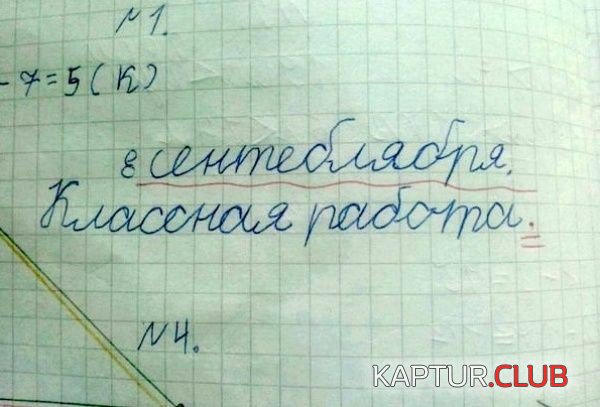 №1.
- 7=5(К)
8 сентеблября.
Классная работа.
№4.
KAPTUR.CLUB